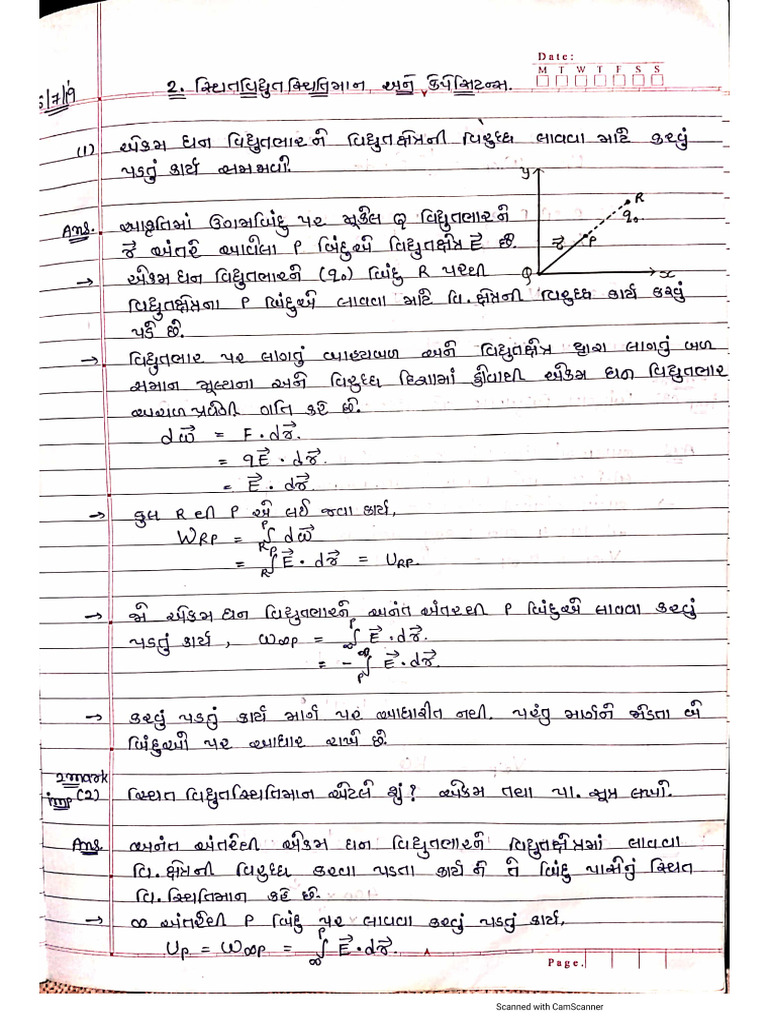 Date:
M T W T F S S
5/7/19
2. સ્થિતવિદ્યુતસ્થિતિમાન અને કેપેસિટન્સ.
(1) એકમ ધન વિદ્યુતભારને વિદ્યુતક્ષેત્રની વિરુધ્ધ લાવવા માટે કરવું
પડતું કાર્ય સમજાવો.
Ans. આકૃતિમાં ઉગમબિંદુ પર મૂકેલ Q વિદ્યુતભારને
r⃗ અંતરે આવેલા P બિંદુએ વિદ્યુતક્ષેત્ર E⃗ છે.
y R q₀ r⃗ P Q x
→ એકમ ધન વિદ્યુતભારને (q₀) બિંદુ R પરથી
વિદ્યુતક્ષેત્રના P બિંદુએ લાવવા માટે વિ.ક્ષેત્રની વિરુધ્ધ કાર્ય કરવું
પડે છે.
→ વિદ્યુતભાર પર લાગતું બાહ્યબળ અને વિદ્યુતક્ષેત્ર દ્વારા લાગતું બળ
સમાન મૂલ્યના અને વિરુધ્ધ દિશામાં હોવાથી એકમ ધન વિદ્યુતભાર
અચળ પ્રવેગી ગતિ કરે છે.
dw⃗ = F · dr⃗.
= qE⃗ · dr⃗.
= E⃗ · dr⃗.
→ કુલ R થી P એ લઈ જવા કાર્ય,
W_RP = ∫_R^P dw⃗
= ∫_R^P E⃗ · dr⃗ = U_RP.
→ જો એકમ ધન વિદ્યુતભારને અનંત અંતરેથી P બિંદુએ લાવવા કરવું
પડતું કાર્ય, W∞P = ∫_∞^P E⃗ · dr⃗.
= -∫_P^∞ E⃗ · dr⃗.
→ કરવું પડતું કાર્ય માર્ગ પર આધારીત નથી. પરંતુ માર્ગને જોડતા બે
બિંદુઓ પર આધાર રાખે છે.
2mark
imp (2) સ્થિત વિદ્યુતસ્થિતિમાન એટલે શું? એકમ તથા પા. સૂત્ર લખો.
Ans અનંત અંતરેથી એકમ ધન વિદ્યુતભારને વિદ્યુતક્ષેત્રમાં લાવવા
વિ.ક્ષેત્રની વિરુધ્ધ કરવા પડતા કાર્ય ને તે બિંદુ પાસેનું સ્થિત
વિ.સ્થિતિમાન કહે છે.
→ ∞ અંતરેથી P બિંદુ પર લાવવા કરવું પડતું કાર્ય,
U_P = W∞P = ∫_∞^P E⃗ · dr⃗.
Page.
Scanned with CamScanner